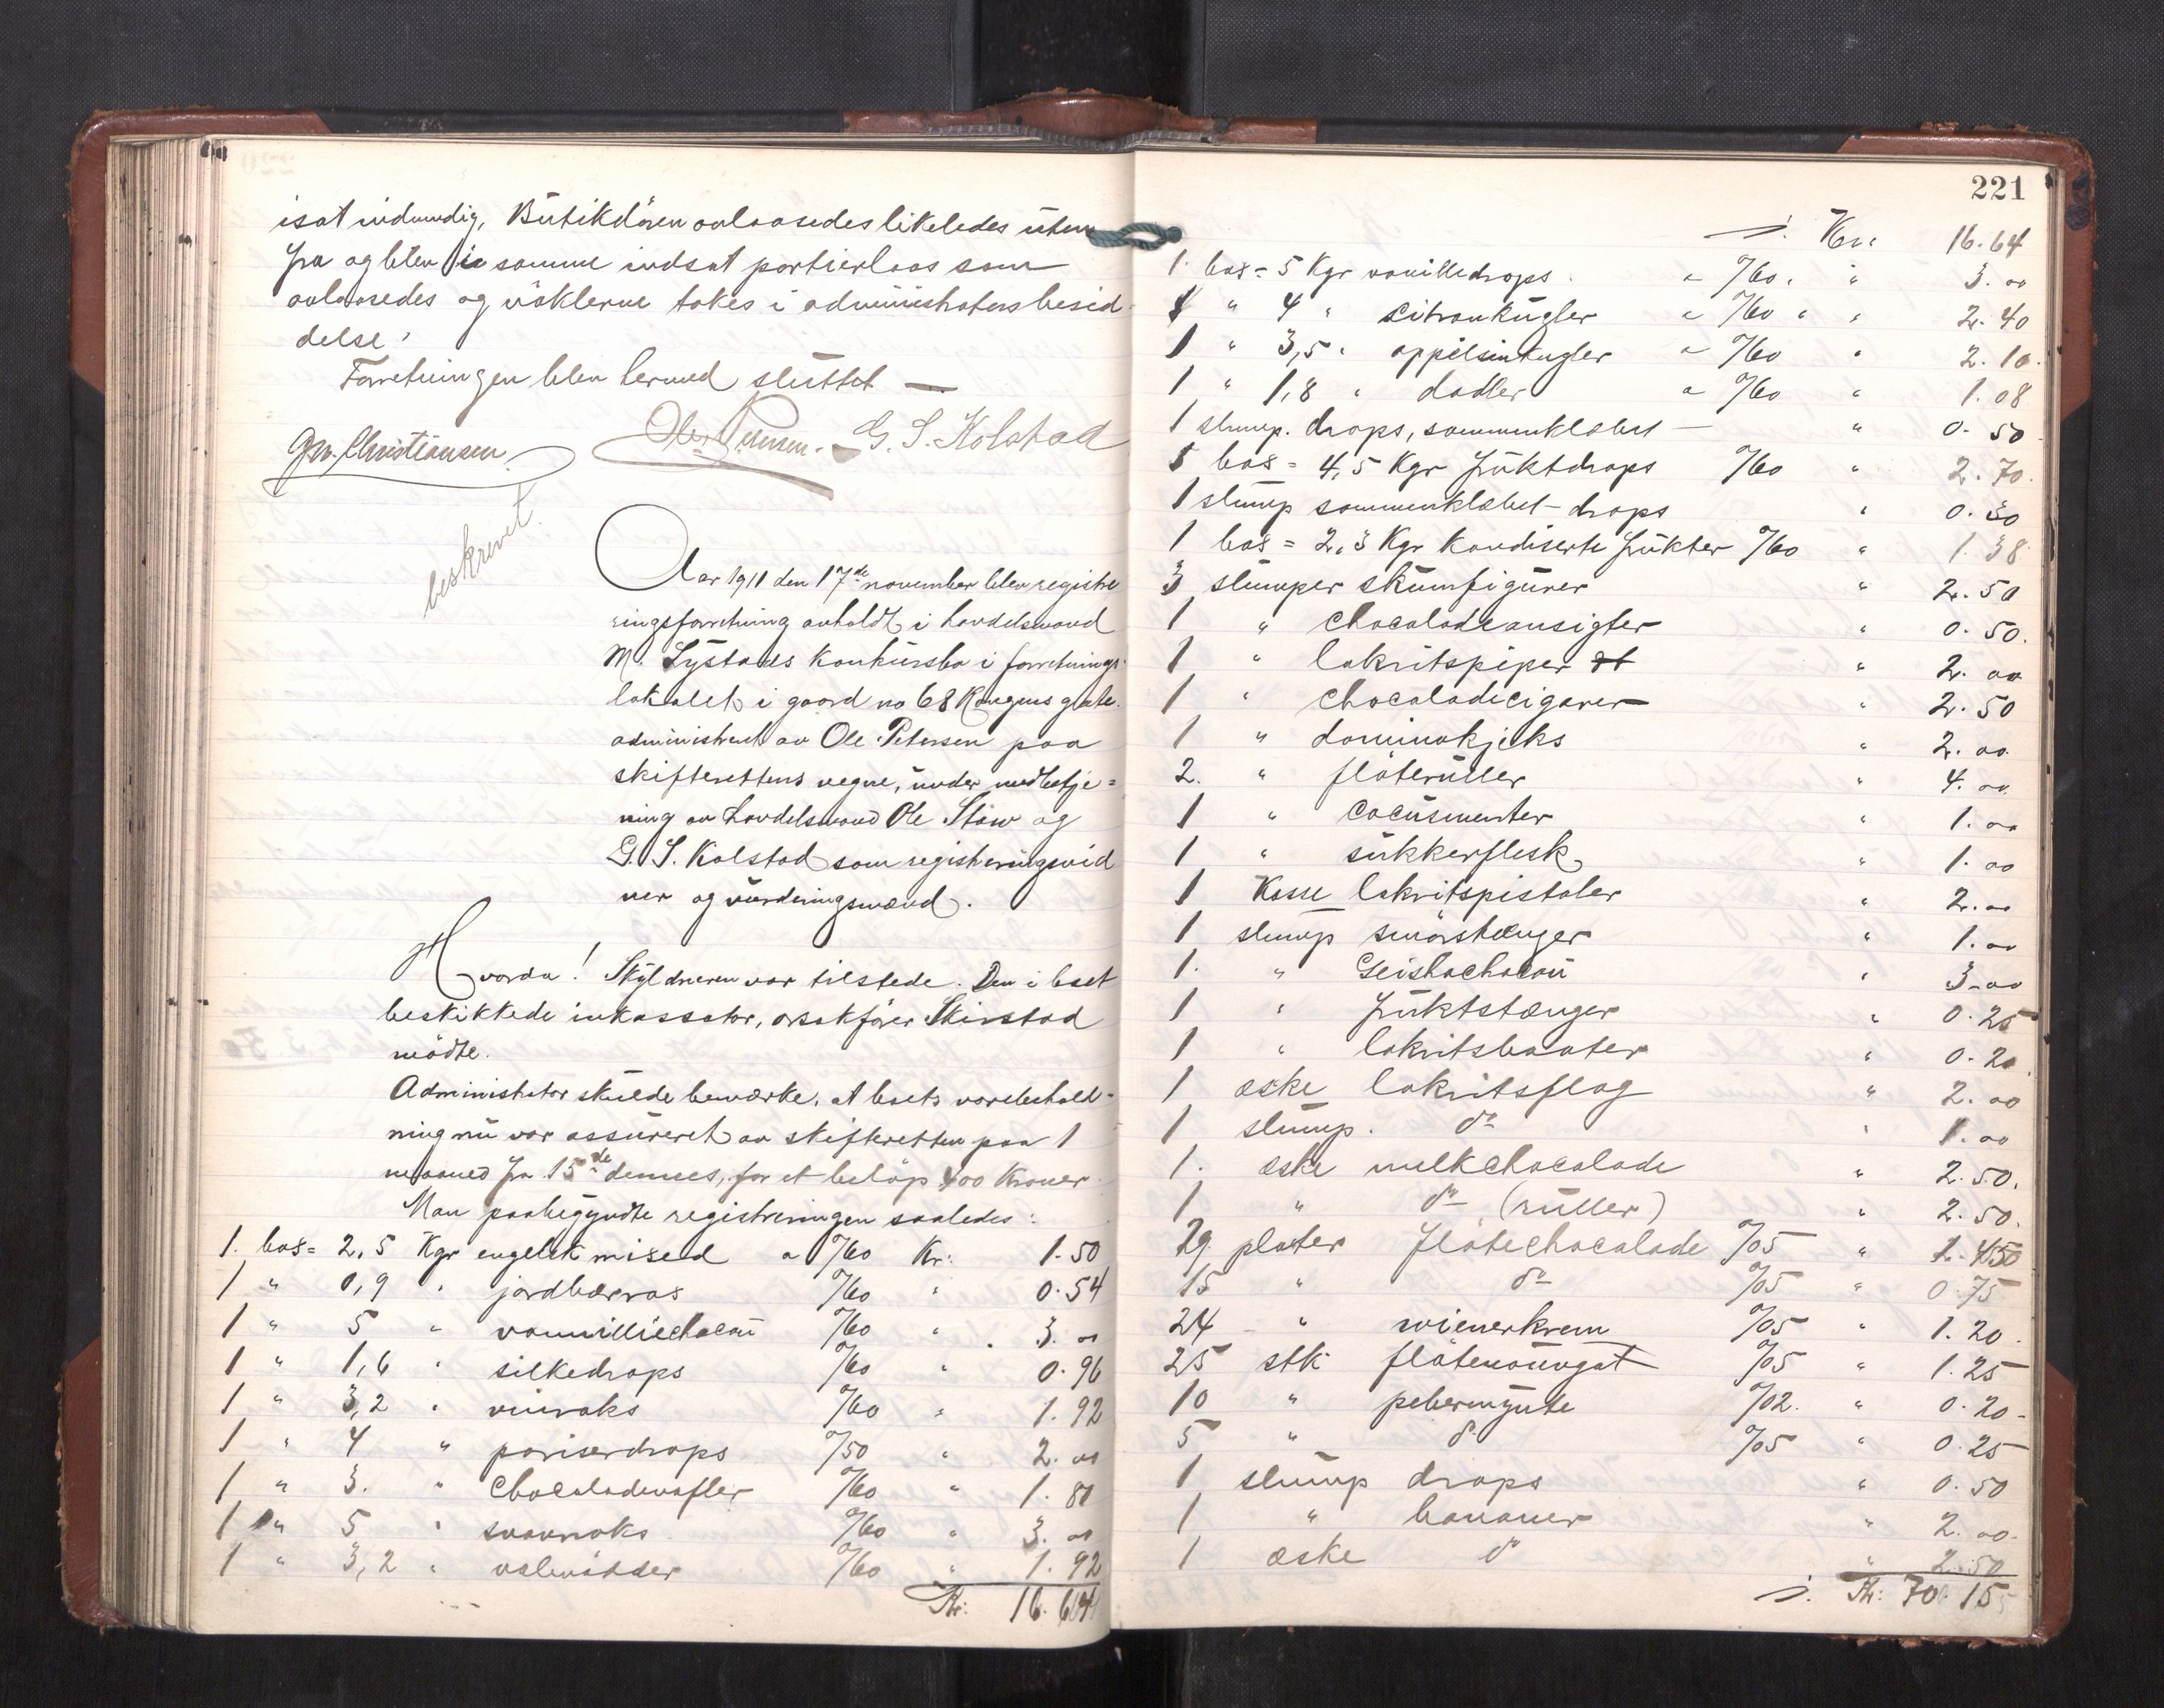 isat indvendig. Butikdören avlaasedes likeledes uten
fra og blev i samme indsat portierlaas som
avlaasedes og nöklerne tokes i administrators besid-
delse.
Forretningen blev herved sluttet —
Joh. Christiansen Ole Petersen. G. S. Kolstad
beskrevet.
Aar 1911 den 17de november blev registre
ringsforretning avholdt i handelsmand
M. Lystads konkursbo i forretnings-
lokalet i gaard no 68 Kongens gate.
administrert av Ole Petersen paa
skifterettens vegne, under medbetje=
ning av handelsmand Ole Stav og
G. S. Kolstad som registreringsvid
ner og vurderingsmænd.
Hvorda! Skyldneren var tilstede. Den i boet
beskikkede inkassator, orsakförer Skirstad
mödte.
Administrator skulde bemærke, at boets varebehold-
ning nu var assureret av skifteretten paa 1
maaned fra 15de dennes, for et belöp 400 kroner.
Man paabegyndte registreringen saaledes:
1. boks= 2,5 Kgr engelsk mixed a %60 Kr: 1.50
1 " 0,9 " jordbærvas %60 " 0.54
1 " 5 " vannilliechocau %60 " 3.00
1 " 1,6 " silkedrops %60 " 0.96
1 " 3,2 " vinraks %60 " 1.92
1 " 4 " pariserdrops %50 " 2.00
1 " 3. " Chocoladevafler %60 " 1.80
1 " 5 " svovraks %60 " 3.00
1 " 3,2 " valenödder %60 " 1.92
Kr: 16.64
221
Kr: 16.64
1 boks= 5 Kgr vanilledrops a %60. " 3.00
1 " 4 " Citronkugler a %60 " 2.40
1 " 3,5 " appelsinkugler a %60 " 2.10.
1 " 1,8 " dadler a %60 " 1.08
1 slump. drops, sammenklabet — " 0.50
1 boks= 4,5 Kgr fruktdrops %60 " 2.70.
1 slump sammenklabet drops " 0.30
1 boks= 2,3 Kgr kandiserte frukter %60 " 1.38
3 slumper skumfigurer " 2.50
1 " Chocoladeansigter " 0.50.
1 " lakritspiper " 2.00
1 " Chocoladecigarer " 2.50
1 " dominokjeks " 2.00
2. " flöteruller " 4.00
1 " Cocusmenter " 1.00
1 " sukkerflesk " 1.00
1 Kasse lakritspistoler " 2.00
1 slump smörstænger " 1.00
1. " Geishachocau " 3.00
1 " fruktstænger " 0.25
1 " lakritsbaater " 0.20
1 æske lakritsflag " 2.00
1 slump. do " 1.00
1. æske melkchocolade " 2.50.
1 " do (ruller) " 2.50.
29. plater flötechocolade %05 " 1.45
15 " do %05 " 0.75
24 " wienerkrem %05 " 1.20.
25 stk flötenougat %05 " 1.25
10 " pebermynte %02. " 0.20
5 " do %05 " 0.25
1 slump drops " 0.50
1 " bananer " 2.00
1 æske do " 2.50
Kr: 70.15